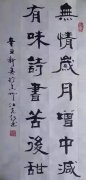 無情歲月增中減
有味詩書苦後甜